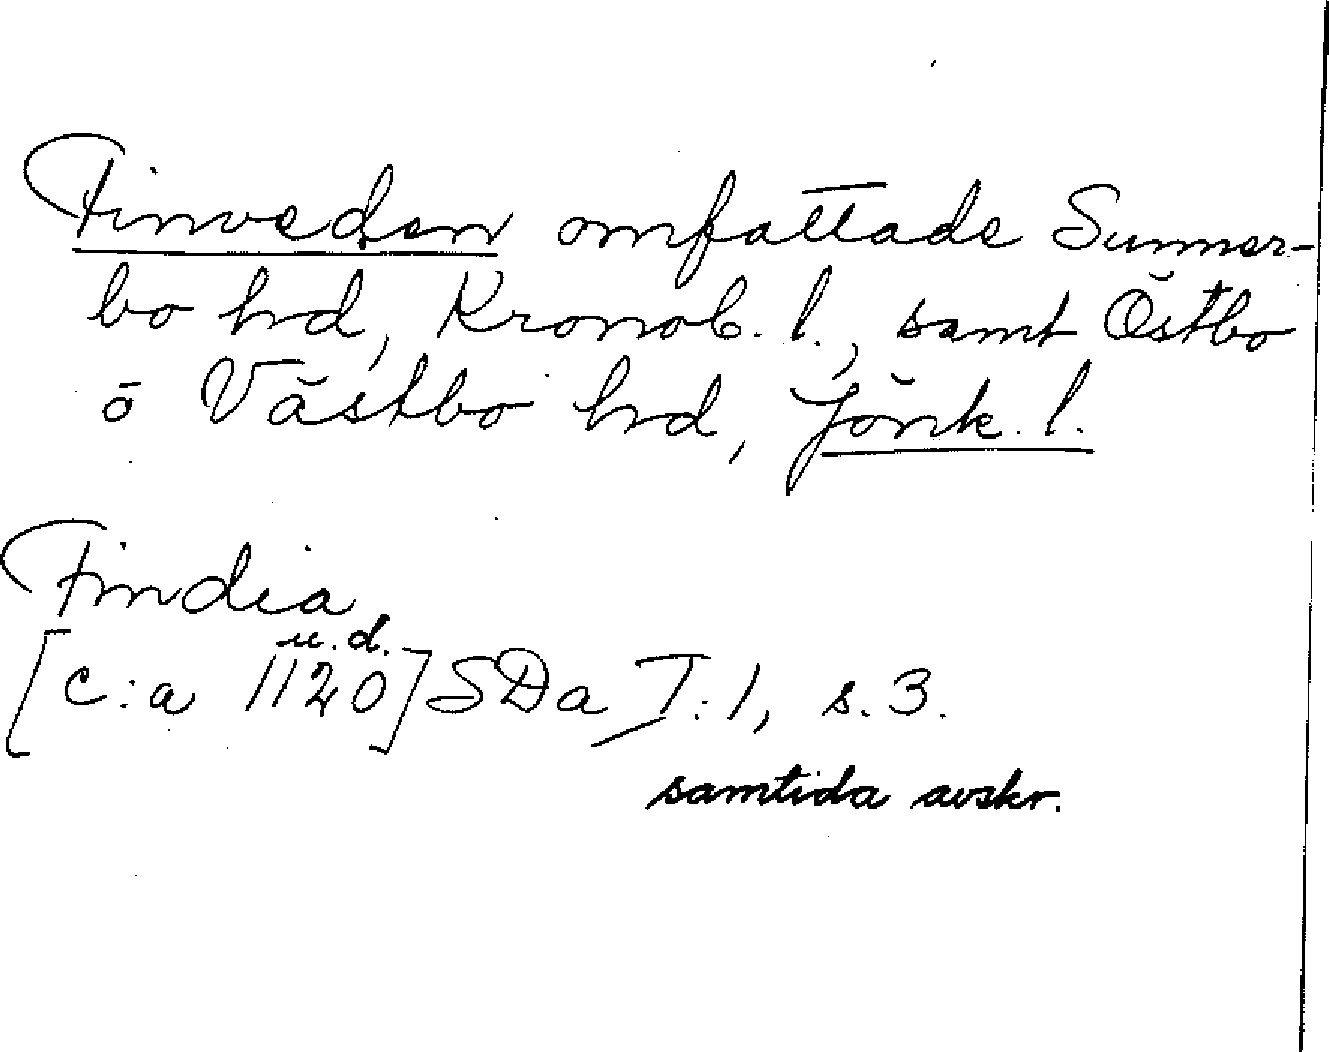 Finveden omfattade Sunner-
bo hd, Kronob. l., samt Östbo
o Västbo hd, Jönk. l.
Findia
u.d.
[c:a 1120] SDa T:1, s. 3.
samtida avskr.